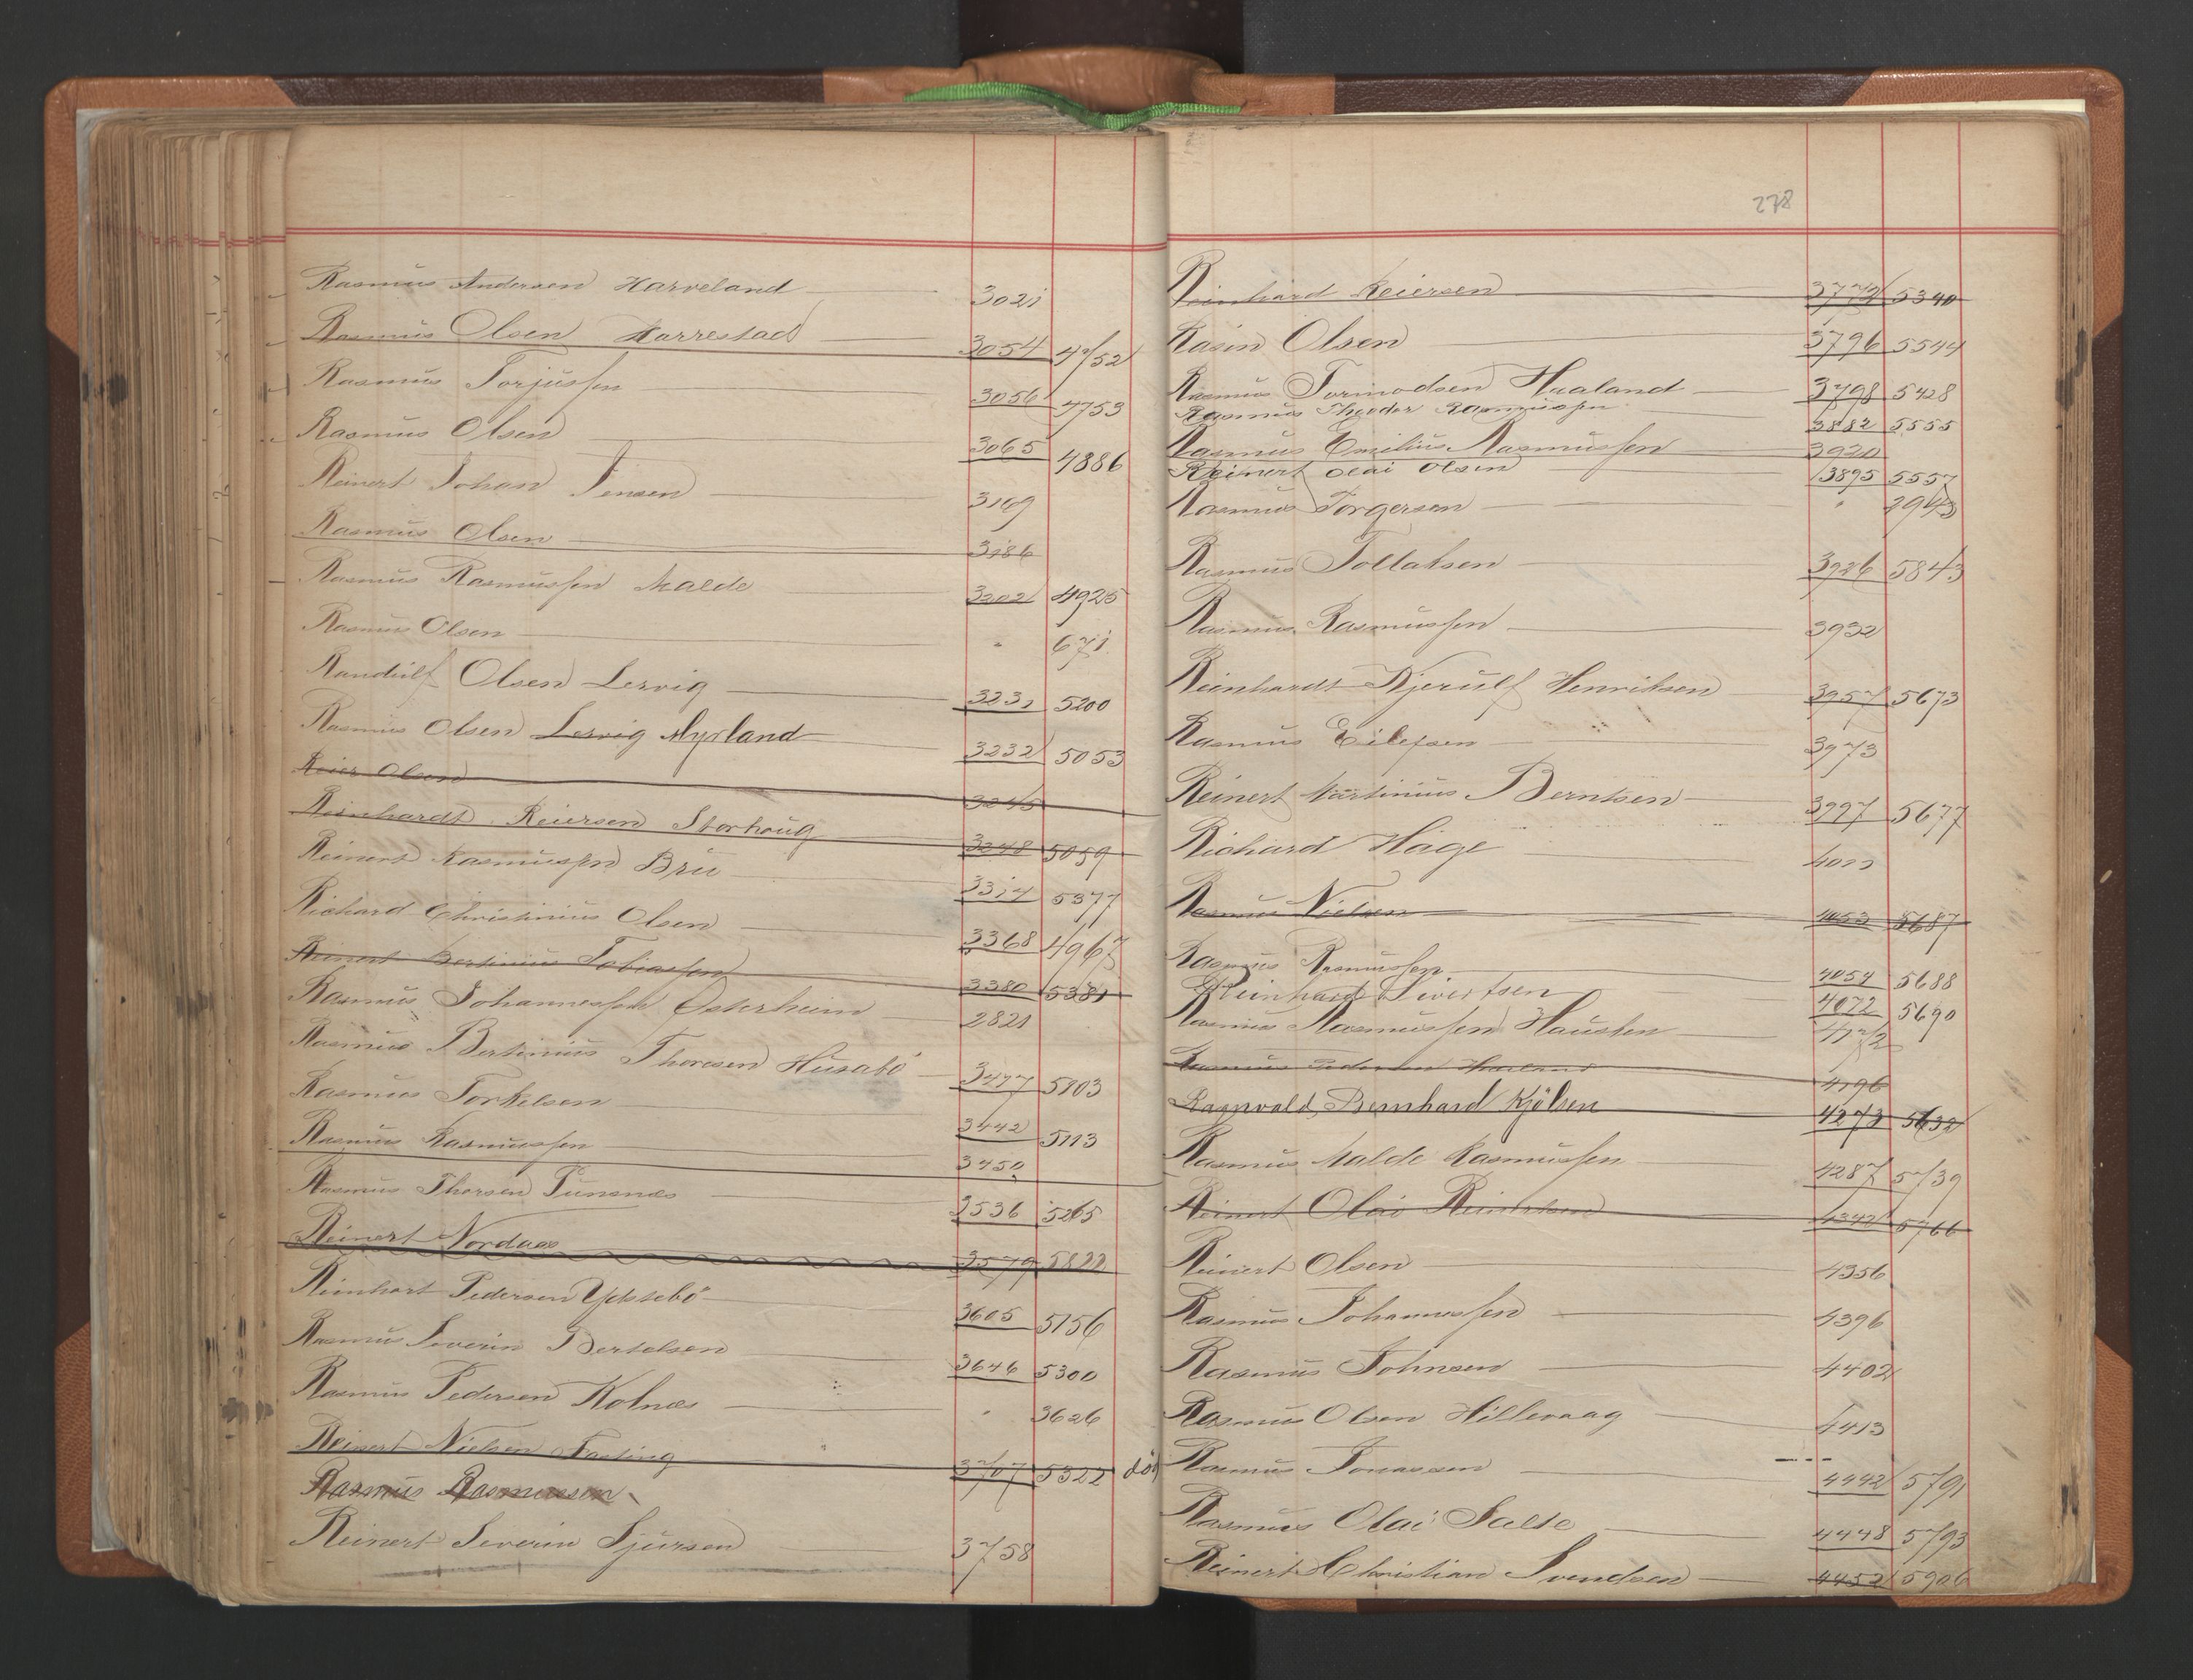 Rasmus Andersen Harveland 3021
Rasmus Olsen Harrestad 3054 4752
Rasmus Torjussen 3056 4753
Rasmus Olsen 3065 4886
Reinert Johan Jensen 3169
Rasmus Olsen 3186
Rasmus Rasmussen Malde 3202 4925
Rasmus Olsen " 671
Randulf Olsen Lervig 3231 5200
Rasmus Olsen Lervig Myrland 3232 5053
Reier Olsen 3245
Reinhardt Reiersen Storhoug 3248 5059
Reinert Rasmussen Bru 3314 5377
Richard Christinius Olsen 3368 4967
Reinert Bertinius Tobiassen 3380 5381
Rasmus Johannessen Osterheim 2821
Rasmus Bertinius Thoresen Husabö 3477 5103
Rasmus Torkelsen 3442 5113
Rasmus Rasmussen 3450
Rasmus Thorsen Tunenes 3536 5265
Reinert Nordaas 3579 5822
Reinhart Pedersen Yttstebö 3605 5156
Rasmus Severin Bertelsen 3646 5300
Rasmus Pedersen Kolnæs " 3626
Reinert Nielsen Fasting 3707 5322 död
Rasmus Rasmussen
Reinert Severin Sjursen 3758
278
Reinhard Reiersen 3772 5340
Rasin Olsen 3796 5544
Rasmus Tormodsen Hualand 3798 5428
Rasmus Theodor Rasmussen 3882 5555
Rasmus Emilius Rasmussen 3920
Reinert Olai Olsen 3895 5557
Rasmus Torgersen " 2943
Rasmus Tollaksen 3926 5843
Rasmus Rasmussen 3932
Reinhardt Kjerulf Henriksen 3957 5673
Rasmus Eilefsen 3973
Reinert Martinius Berntsen 3997 5677
Richard Hage 4022
Rasmus Nielsen 4053 5687
Rasmus Rasmussen 4054 5688
Reinhard Sivertsen 4072 5690
Rasmus Rasmussen Hausken 4172
Rasmus Pedersen Haaland 4196
Ragnvald Bernhard Kjölsen 4273 5632
Rasmus Malde Rasmussen 4287 5739
Reinert Olai Reinertsen 4342 5766
Reinert Olsen 4356
Rasmus Johannessen 4396
Rasmus Johnsen 4402
Rasmus Olsen Hillevaag 4413
Rasmus Jonassen 4442 5791
Rasmus Olai Salte 4448 5793
Reinert Christian Svendsen 4452 5906